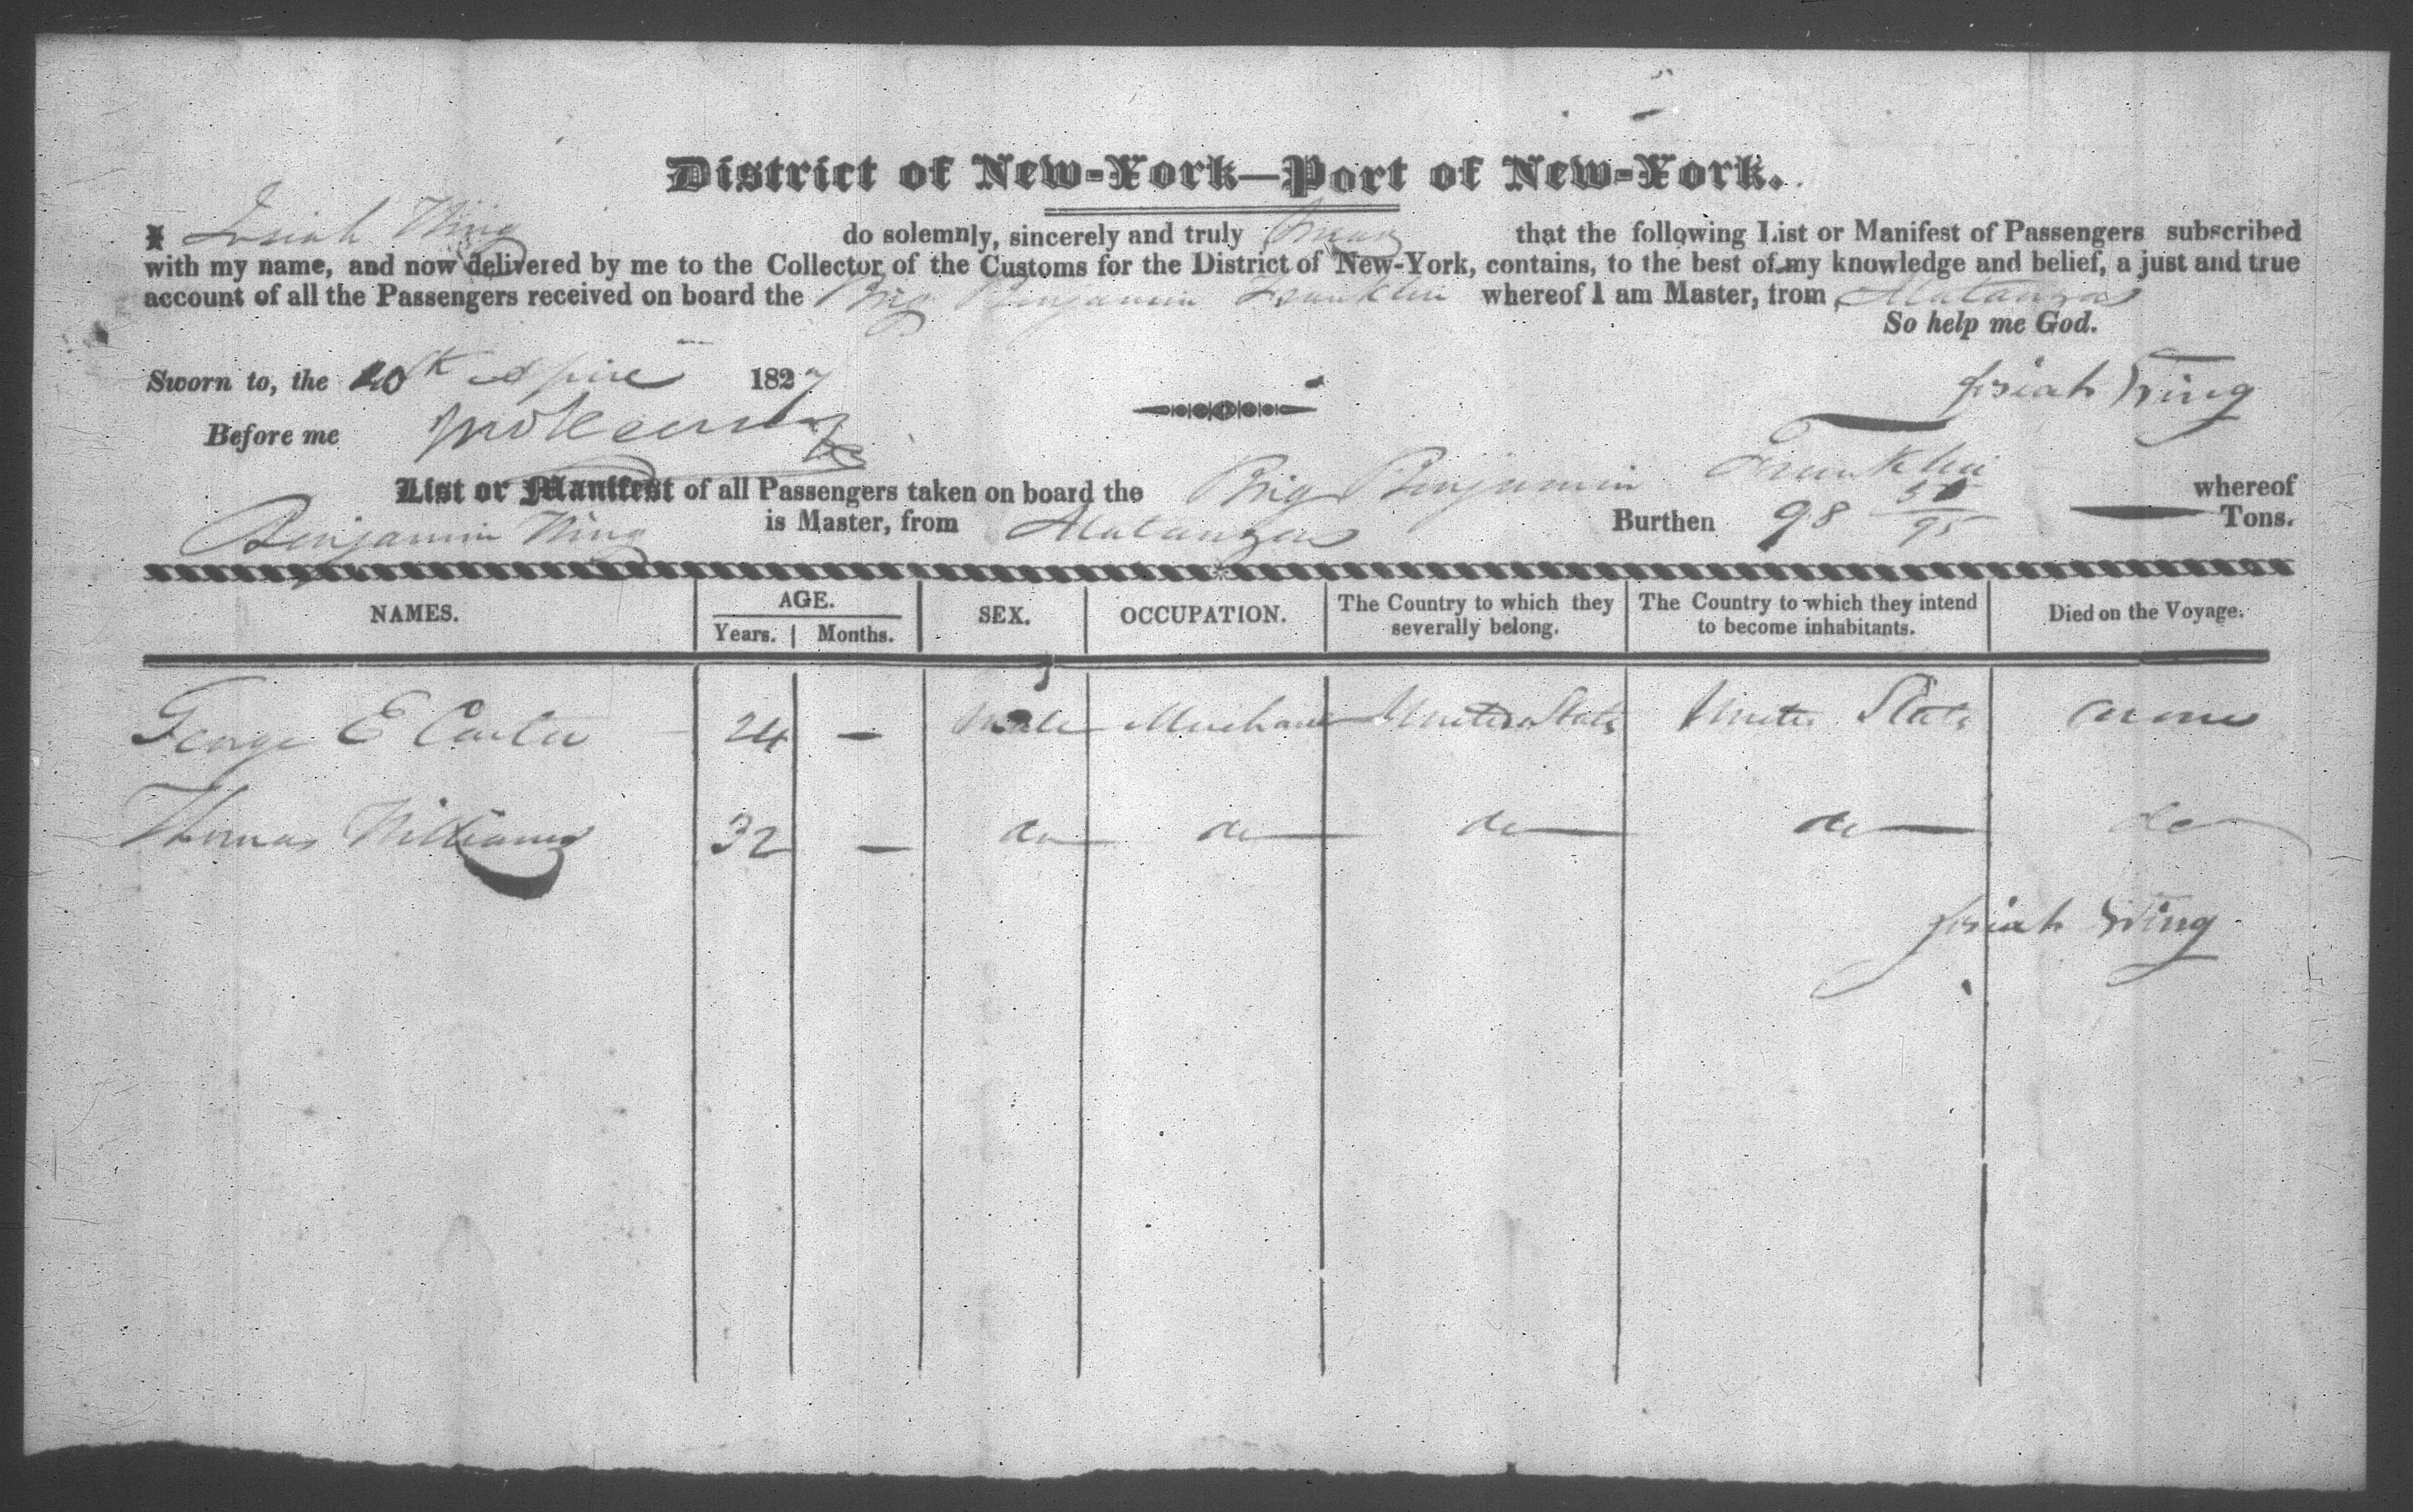 District of New-York—Port of New-York.
I Josiah Wing do solemnly, sincerely and truly swear that the following List or Manifest of Passengers subscribed
with my name, and now delivered by me to the Collector of the Customs for the District of New-York, contains, to the best of my knowledge and belief, a just and true
account of all the Passengers received on board the Brig Benjamin Franklin whereof I am Master, from Matanzas
So help me God.
Sworn to, the 20th April 1827
Josiah Wing
Before me
List or Manifest of all Passengers taken on board the Brig Benjamin Franklin whereof
Benjamin Wing is Master, from Matanzas Burthen 98 /95 Tons.
NAMES. AGE. Years. Months. SEX. OCCUPATION. The Country to which they severally belong. The Country to which they intend to become inhabitants. Died on the Voyage.
George E Carter 24 — Male Merchant United States United States None
Thomas Williams 32 — do do do do do
Josiah Wing